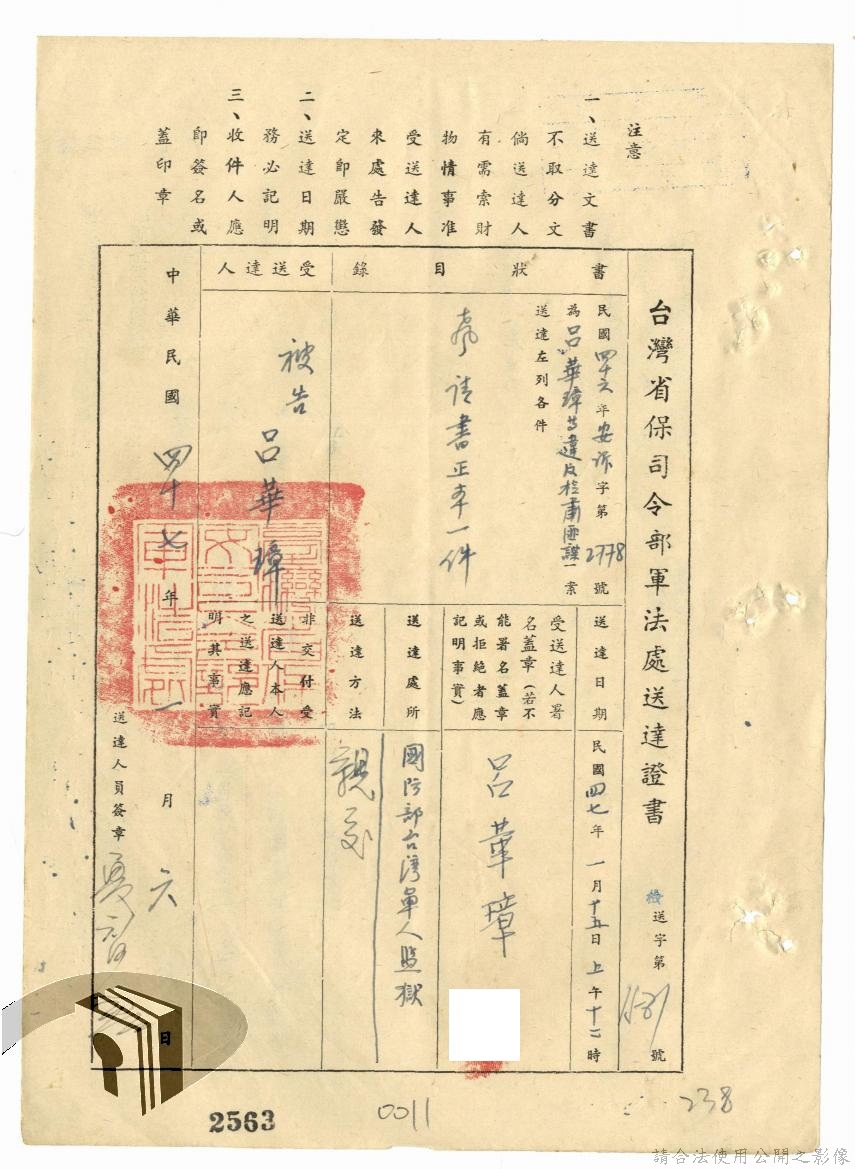 注意
一、送達文書
不取分文
倘送達人
有需索財
物情事准
受送達人
來處告發
定即嚴懲
二、送達日期
務必記明
三、收件人應
即簽名或
蓋印章
台灣省保司令部軍法處送達證書
檢送字第
號
書狀目錄
民國四十六年安訴字第2778號
為呂華璋等違反檢肅匪諜一案
送達左列各件
聲請書正本一件
受送達人
被告呂華璋
送達日期
民國四七年一月十五日上午十二時
受送達人署
名蓋章(若不
能署名蓋章
或拒絕者應
記明事實)
呂華璋
送達處所
國防部台灣軍人監獄
送達方法
親交
非交付受
送達人本人
之送達應記
明其事實
中華民國四十七年一月六日
送達人員簽章
2563
0011
238
請合法使用公開之影像